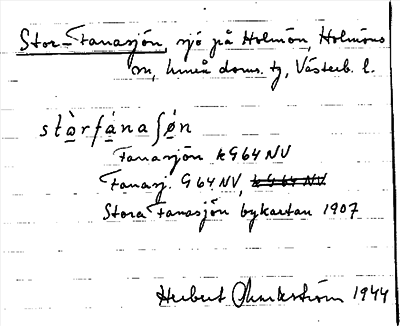 Stor-Fanasjön, sjö på Holmön, Holmöns
sn, Umeå doms. tg, Västerb. l.
stòrfánaʃǿn
Fanasjön kG64NV
Fanasj. G64NV, kG64NV
Stora Fanasjön bykartan 1907
Herbert 1944